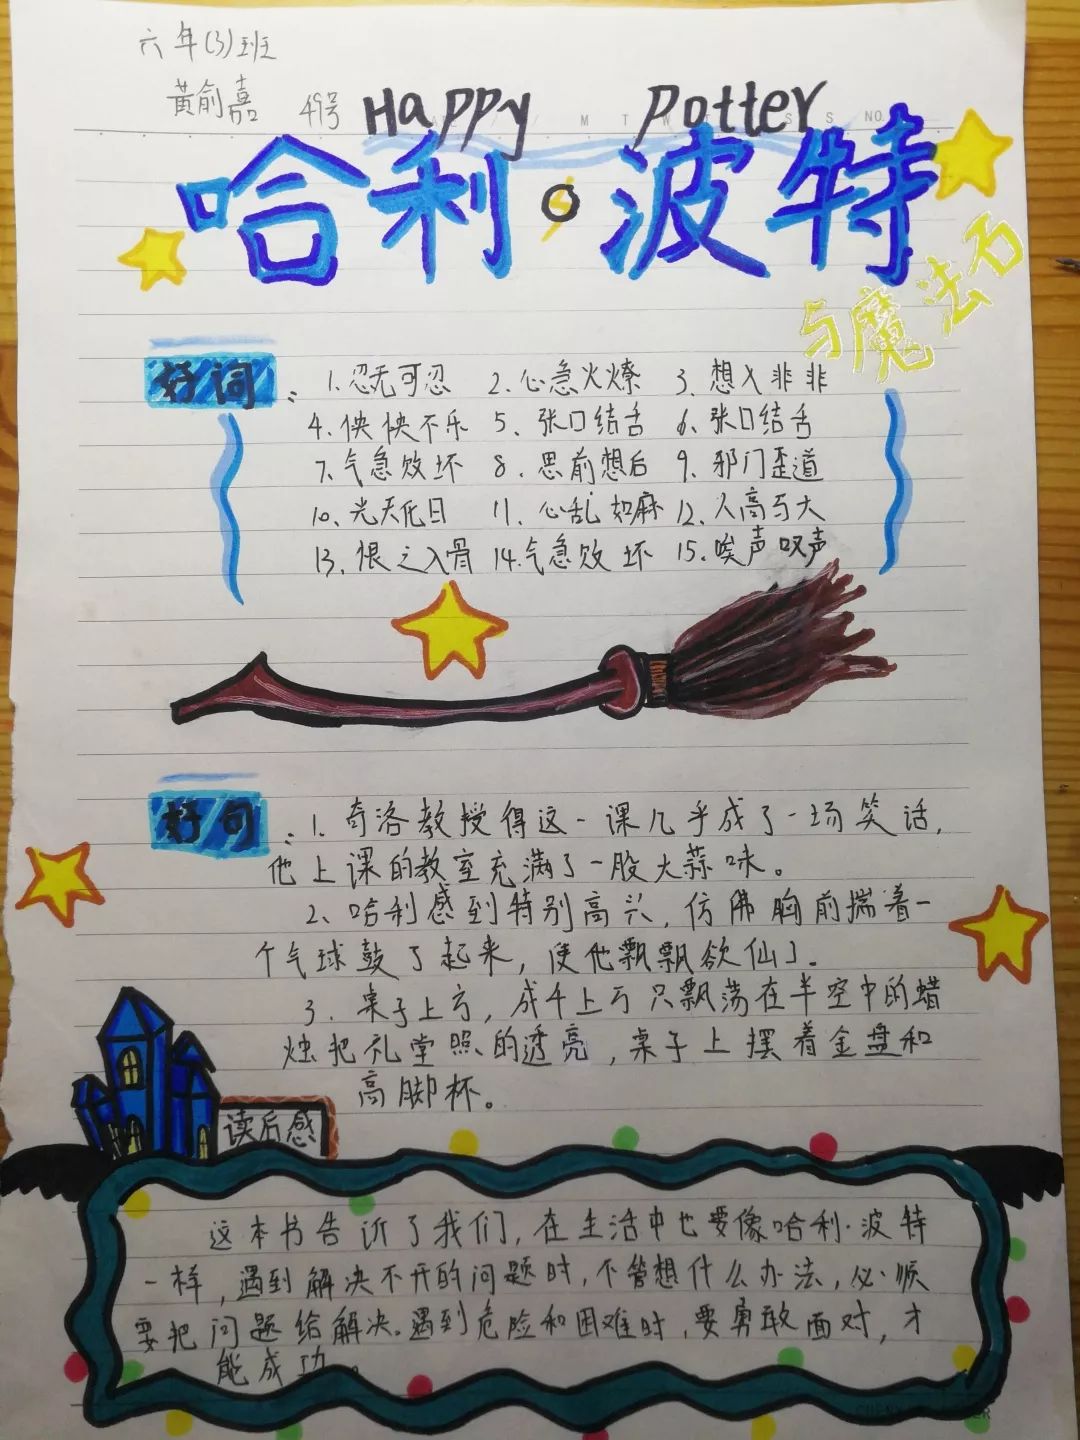 六年(3)班
黄俞嘉 49号
Happy Potter
M T W T S S NO.
哈利·波特
与魔法石
好词：1.忍无可忍 2.心急火燎 3.想入非非
4.怏怏不乐 5、张口结舌 6、张口结舌
7.气急败坏 8、思前想后 9、邪门歪道
10、光天化日 11、心乱如麻 12、人高马大
13、恨之入骨 14.气急败坏 15、唉声叹声
好句：1.奇洛教授得这一课几乎成了一场笑话，
他上课的教室充满了一股大蒜味。
2、哈利感到特别高兴，仿佛胸前揣着一
个气球鼓了起来，使他飘飘欲仙了。
3、桌子上方，成千上万只飘荡在半空中的蜡
烛把礼堂照的透亮，桌子上摆着金盘和
高脚杯。
读后感
这本书告诉了我们，在生活中也要像哈利·波特
一样，遇到解决不开的问题时，不管想什么办法，必须
要把问题给解决。遇到危险和困难时，要勇敢面对，才
能成功。